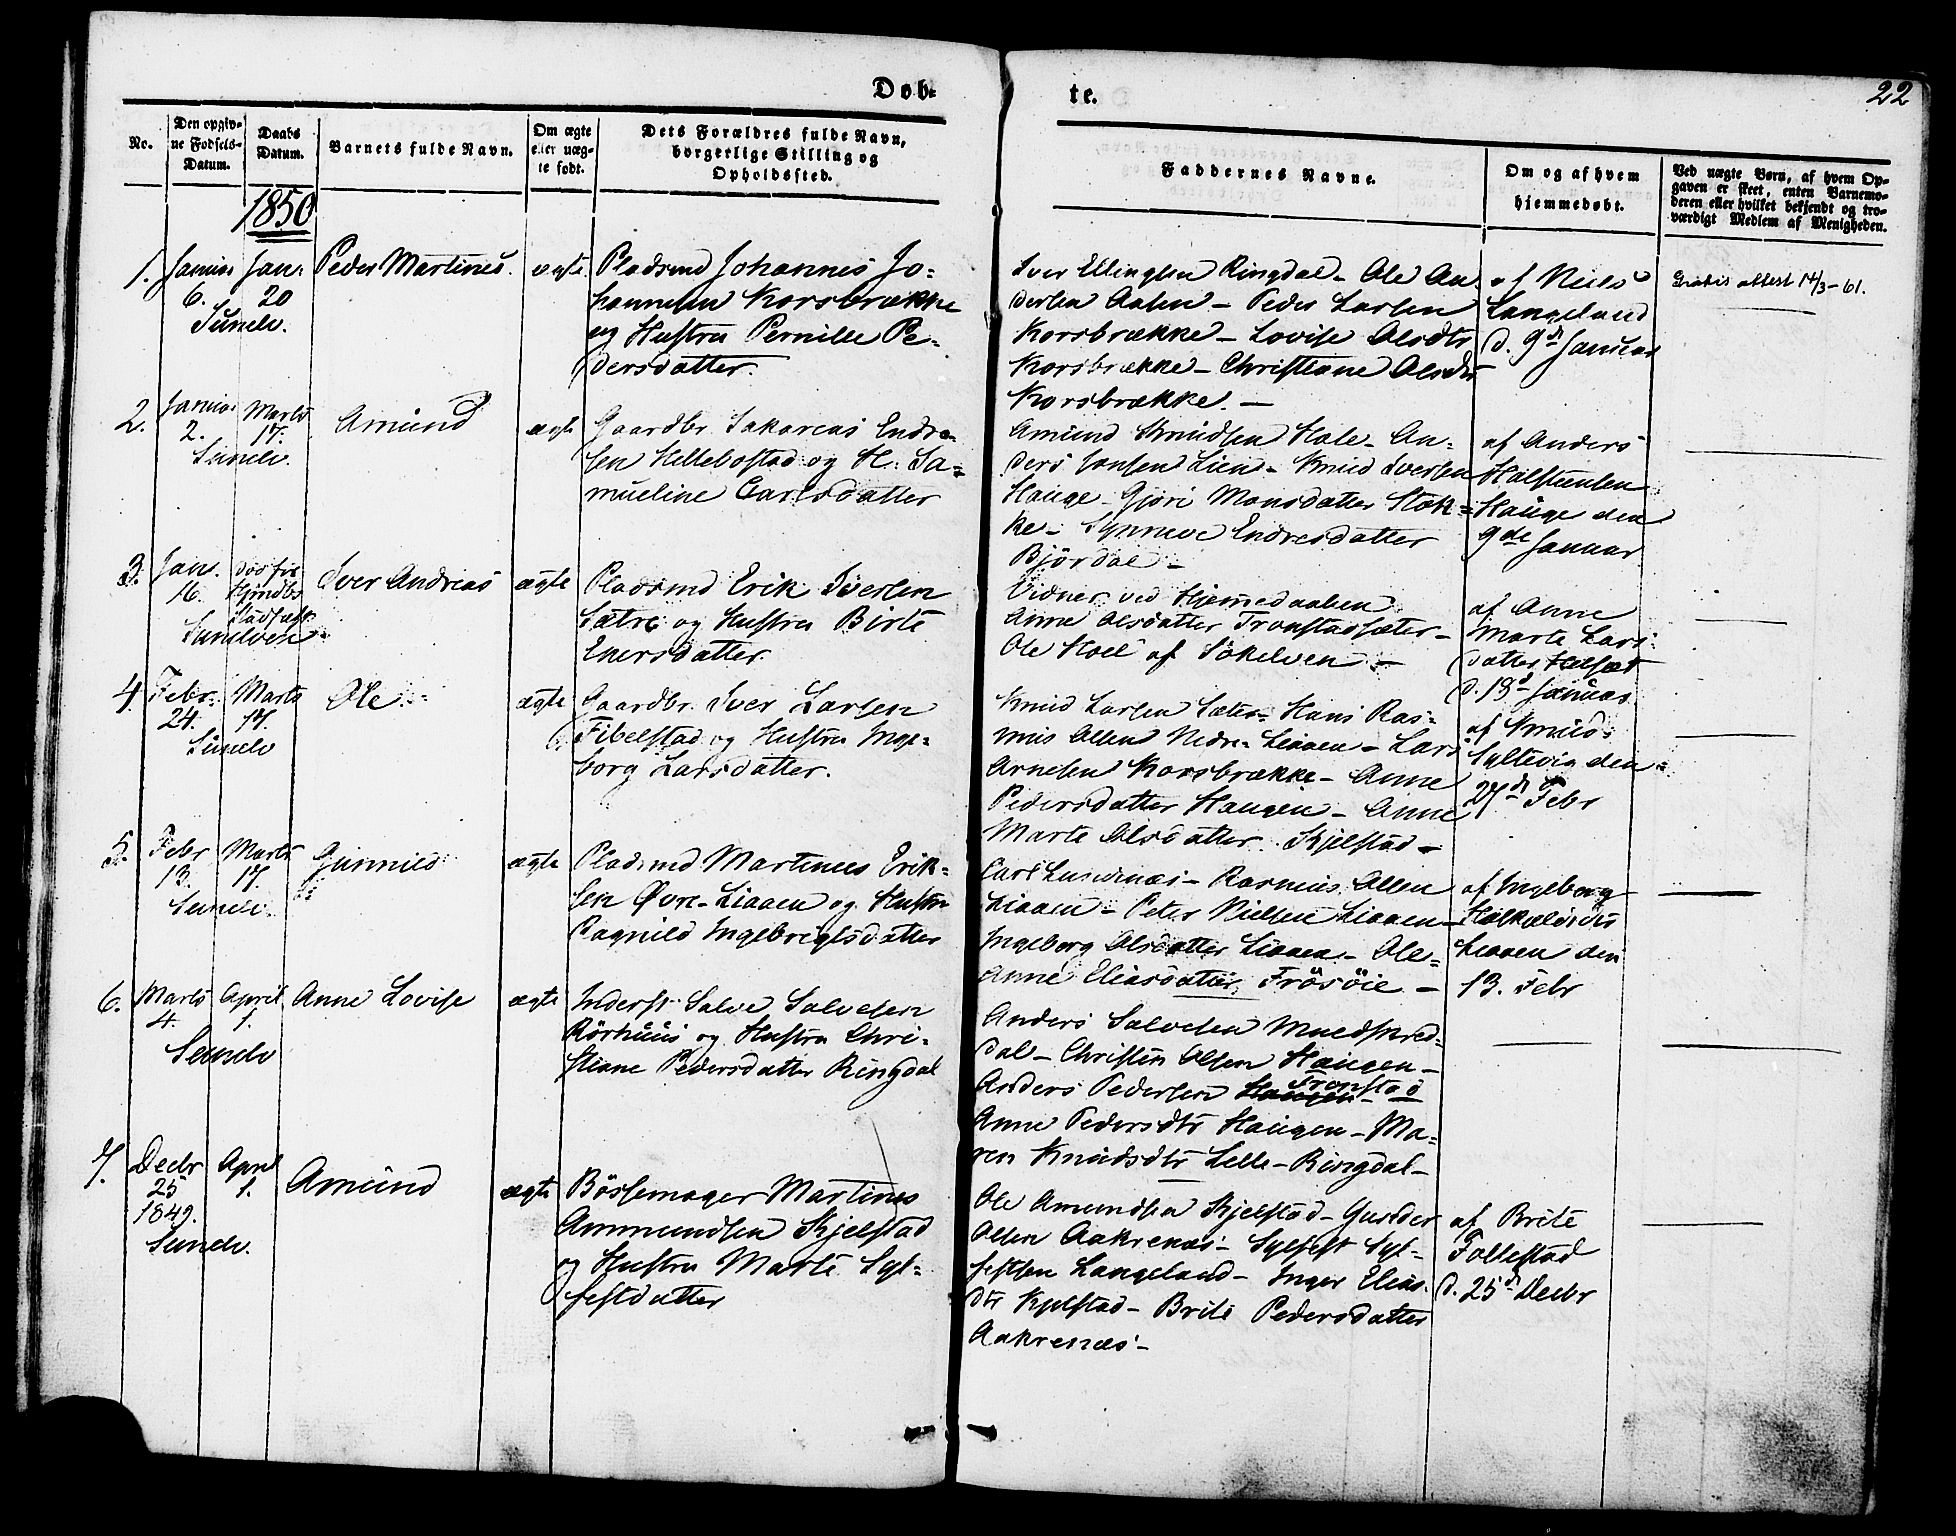 Døb-
te.
22
No.
Den opgiv-
ne Fødsels-
Datum.
Daabs
Datum.
Barnets fulde Navn.
Om ægte
eller uæg-
te født.
Dets Forældres fulde Navn,
borgerlige Stilling og
Opholdssted.
Faddernes Navne.
Om og af hvem
hjemmedøbt.
Ved uægte Børn, af hvem Op-
gaven er skeet, enten Barnemo-
deren eller hvilket bekjendt og tro-
værdigt Medlem af Menigheden.
1850
1.
Januar
6.
Jan:
20
Sunelv.
Peder Martinus.
ægte
Pladsmd Johannes Jo-
hannesen Korsbrække
og Hustru Pernille Pe-
dersdatter
Iver Ellingsen Ringdal - Ole An-
dersen Aasen - Peder Larsen
Korsbrække - Lovise Olsdtr
Korsbrække - Christiane Olsdtr
Korsbrække. -
af Niels
Langeland
d. 9d Januar
Gratis attest 14/3-61.
2.
Januar
2.
Marts
17.
Sunelv.
Amund
ægte
Gaardbr. Sakarias Endre-
sen Hellebostad og H. Sa-
mueline Carlsdatter
Amund Knudsen Hole - An-
ders Jonsen Lien - Knud Iversen
Hauge - Gjøri Monsdatter Stok-
ke - Synneve Endresdatter
Bjørdal -
af Anders
Holsteinsen
Hauge den
9de Januar
3.
Jan.
16.
døs før
Stadfæst
Sunelven
Iver Andreas
ægte
Pladsmd Erik Iversen
Sætre og Hustru Birte
Enersdatter.
Vidner ved Hjemmedaaben
Anne Olsdatter Tronstadsæter -
Ole Hoel af Søkelven -
af Anne
Marte Lars-
datter Helsæt
d. 19d Januar
4.
Febr.
24.
Marts
17.
Sunelv
Ole
ægte
Gaardbr. Iver Larsen
Fibelstad og Hustru Inge-
borg Larsdatter.
Knud Larsen Sæter - Hans Ras-
mus Olsen Nedre-Liaaen - Lars
Arnesen Korsbrække - Anne
Pedersdatter Haugen - Anne
Marte Olsdatter Kjelstad -
af Knud
Syltevig den
27d Febr
5.
Febr
13.
Marts
17.
Sunelv.
Gunnild
ægte
Pladsmd Martinus Erik-
sen Øvre-Liaaen og Hustru
Ragnild Ingebregtsdatter
Carl Lundenæs - Rasmus Olsen
Liaaen - Peter Nielsen Liaaen -
Ingeborg Olsdatter Liaaen - Ole-
Anne Eliasdatter, Frøsøie -
af Ingeborg
Liaaen den
13. Febr
6.
Marts
4.
April
1.
Sunelv
Anne Lovise
ægte
Inderst Salve Salvesen
Rørhuus og Hustru Chri-
stiane Pedersdatter Ringdal
Anders Salvesen Muedskred-
dal - Christen Olsen Haugen -
Anders Pedersen Haugen Tronstad
Anne Pedersdtr Haugen - Ma-
ren Knudsdtr Lille-Ringdal -
7.
Decbr
25
1849.
April
1.
Sunelv.
Amund
ægte
Bössemager Martinus
Ammundsen Kjelstad
og Hustru Marte Syl-
festdatter
Ole Amundsen Kjelstad - Gunder
Olsen Aakrenæs - Sylfest Syl-
festsen Langeland - Inger Elias-
dtr Kjelstad - Brite Pedersdatter
Aakrenæs -
af Brite
Follestad
d. 25d Decbr